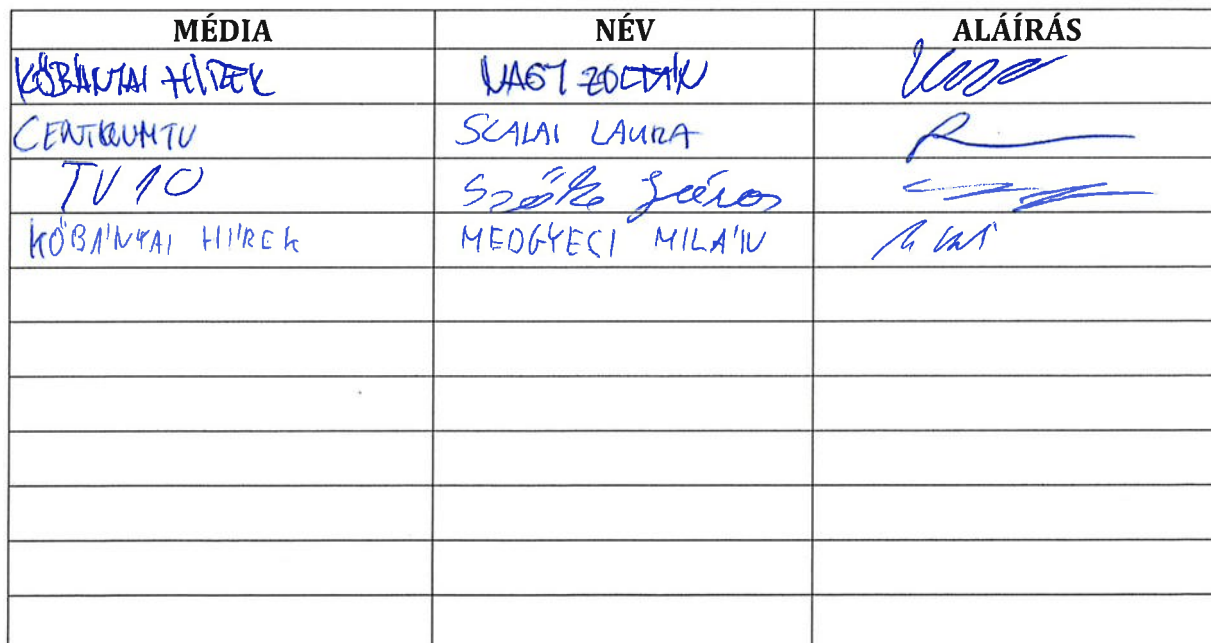 MÉDIA NÉV ALÁÍRÁS
KŐBÁNYAI HÍREK NAGY ZOLTÁN
CENTRUMTV SZALAI LAURA
TV10 Szőke János
KŐBÁNYAI HÍREK MEDGYECI MILÁN